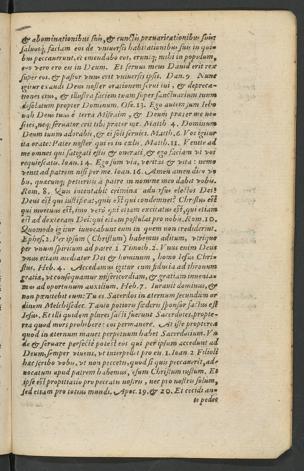 & abominationibus suis, & cunctis prævaricationibus suis:
saluosq́; faciam eos de vniuersis habitationibus suis in qui-
bus peccauerunt, et emendabo eos, eruntq́; mihi in populum,
ego vero ero eis in Deum. Et seruus meus Dauid erit rex
super eos, et pastor vnus erit vniuersis ipsis. Dan. 9. Nunc
igitur exaudi Deus noster orationem serui tui, & depreca-
tiones eius, & illustra faciem tuam super Sanctuarium tuum
desolatum propter Dominum. Ose. 13. Ego autem sum Ieho-
uah Deus tuus è terra Misraim, & Deum præter me nos-
cies, neq́; seruator erit tibi præter me. Matth. 4. Dominum
Deum tuum adorabis, & ei soli seruies. Matth. 6. Vos igitur
ita orate: Pater noster qui es in cœlis, Matth. 11. Venite ad
me omnes qui fatigati estis & onerati, & ego faciam vt vos
requiescatis. Ioan. 14. Ego sum via, veritas & vita: nemo
venit ad patrem nisi per me. Ioan. 16. Amen amen dico vo-
bis, quæcunq́; petieritis à patre in nomine meo dabit vobis.
Rom. 8. Quis intentabit crimina aduersus electos Dei?
Deus est qui iustificat, quis est qui condemnet? Christus est
qui mortuus est, imo verò qui etiam excitatus est, qui etiam
est ad dexteram Dei: qui etiam postulat pro nobis. Rom. 10.
Quomodo igitur inuocabunt eum in quem non crediderunt.
Ephes. 2. Per ipsum (Christum) habemus aditum, vtrique
per vnum spiritum ad patrem 1 Timoth. 2. Vnus enim Deus
vnus etiam mediator Dei & hominum, homo Iesus Chri-
stus. Heb. 4. Accedamus igitur cum fiducia ad thronum
gratiæ, vt consequamur misericordiam, & gratiam inuenia-
mus ad oportunum auxilium. Heb. 7. Iurauit dominus, &
non pœnitebit eum: Tu es Sacerdos in æternum secundum or
dinem Melchisedec. Tanto potioris fœderis sponsor factus est
Iesus. Et illi quidem plures facti fuerunt Sacerdotes, propte-
rea quod mors prohiberet eos permanere. At iste propterea
quod in æternum manet perpetuum habet Sacerdotium. Vn
de & seruare perfectè potest eos qui per ipsum accedunt ad
Deum, semper viuens, vt interpellet pro eis. 1. Ioan. 2 Filioli
hæc scribo vobis, vt non peccetis, quod si quis peccauerit, ad-
uocatum apud patrem habemus, Iesum Christum iustum. Et
ipse est propitiatio pro peccatis nostris, nec pro nostris solum,
sed etiam pro totius mundi. Apoc. 19. & 20. Et cecidi an-
te pedes